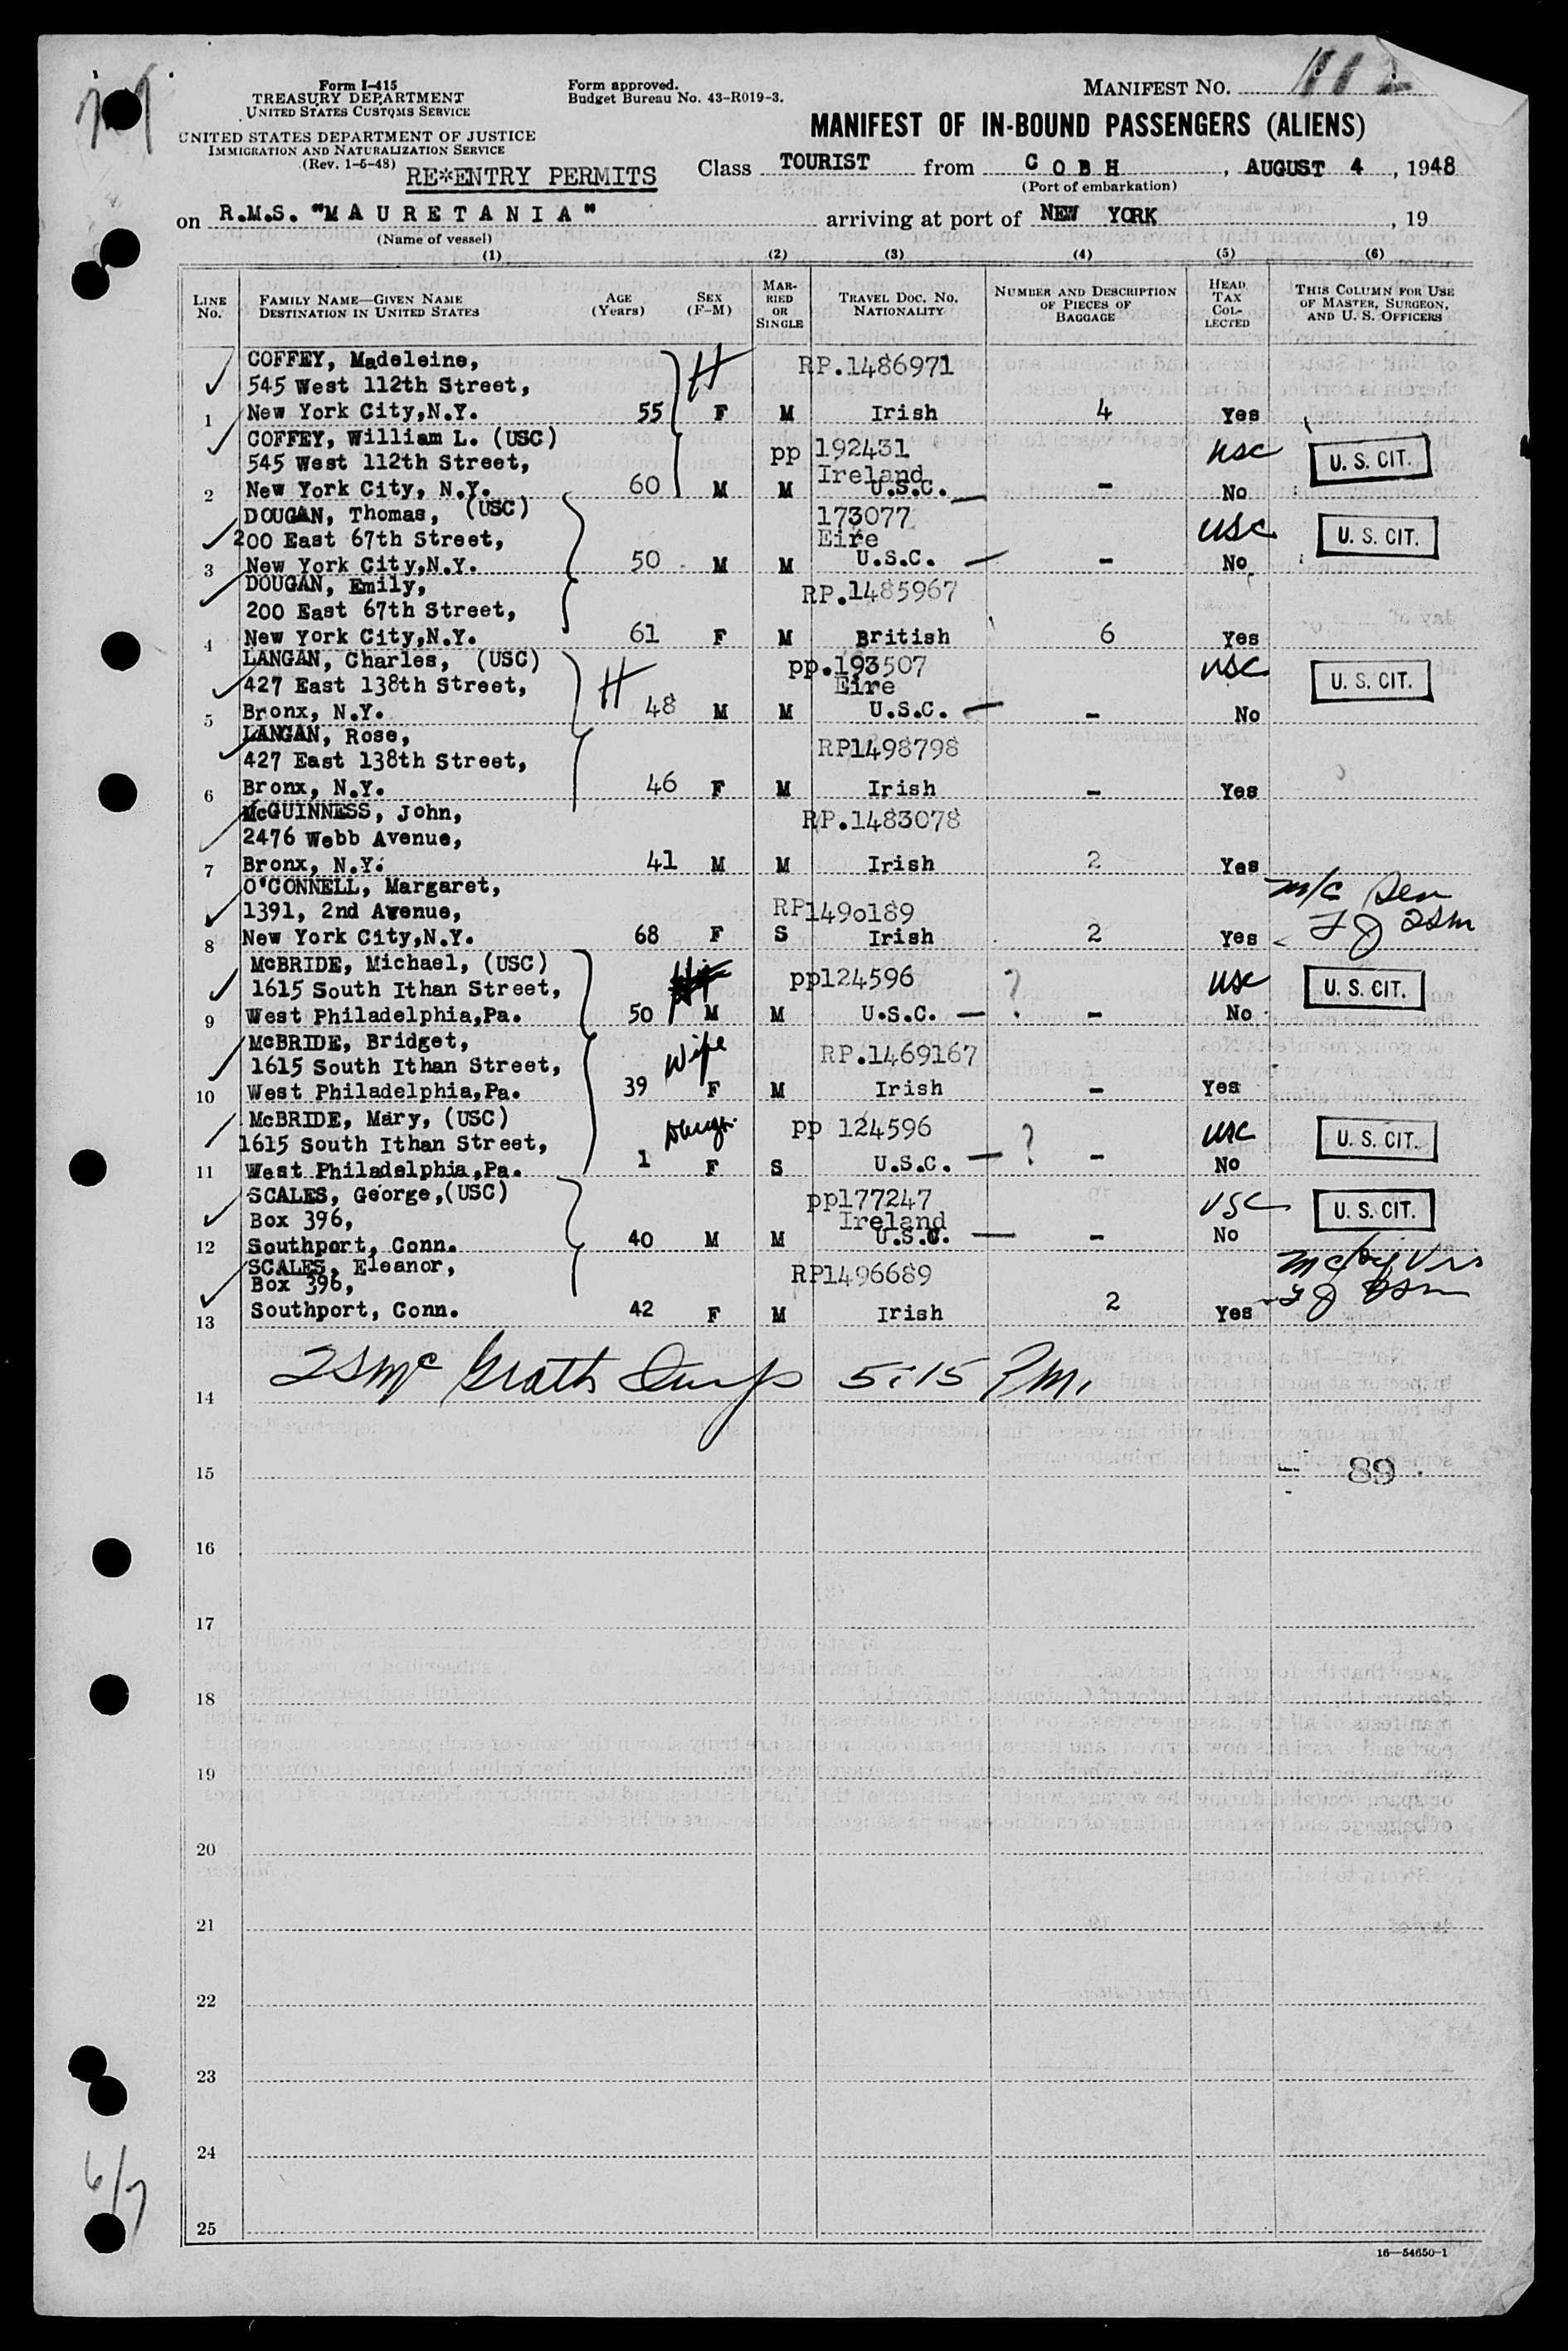 Form I-415
TREASURY DEPARTMENT
UNITED STATES CUSTOMS SERVICE
UNITED STATES DEPARTMENT OF JUSTICE
IMMIGRATION AND NATURALIZATION SERVICE
(Rev. 1-5-48)
RE*ENTRY PERMITS
Form approved.
Budget Bureau No. 43-R019-3.
MANIFEST NO. 112
MANIFEST OF IN-BOUND PASSENGERS (ALIENS)
Class TOURIST from COBH, AUGUST 4, 1948
(Port of embarkation)
on R.M.S. "MAURETANIA" arriving at port of NEW YORK, 19
(Name of vessel)
(1) (2) (3) (4) (5) (6)
LINE No. FAMILY NAME—GIVEN NAME DESTINATION IN UNITED STATES AGE (Years) SEX (F-M) MARRIED OR SINGLE TRAVEL DOC. NO. NATIONALITY NUMBER AND DESCRIPTION OF PIECES OF BAGGAGE HEAD TAX COLLECTED THIS COLUMN FOR USE OF MASTER, SURGEON, AND U. S. OFFICERS
COFFEY, Madeleine, H RP.1486971
545 West 112th Street,
1 New York City,N.Y. 55 F M Irish 4 Yes
COFFEY, William L. (USC) pp 192431 USC U. S. CIT.
545 West 112th Street, Ireland
2 New York City, N.Y. 60 M M U.S.C. - No
DOUGAN, Thomas, (USC) 173077 USC U. S. CIT.
200 East 67th Street, Eire
3 New York City,N.Y. 50 M M U.S.C. - No
DOUGAN, Emily, RP.1485967
200 East 67th Street,
4 New York City,N.Y. 61 F M British 6 Yes
LANGAN, Charles, (USC) H pp.193507 USC U. S. CIT.
427 East 138th Street, Eire
5 Bronx, N.Y. 48 M M U.S.C. - No
LANGAN, Rose, RP1498798
427 East 138th Street,
6 Bronx, N.Y. 46 F M Irish - Yes
McGUINNESS, John, RP.1483078
2476 Webb Avenue,
7 Bronx, N.Y. 41 M M Irish 2 Yes
O'CONNELL, Margaret, m/c
1391, 2nd Avenue, RP1490189
8 New York City,N.Y. 68 F S Irish 2 Yes
McBRIDE, Michael, (USC) pp124596 ? USC U. S. CIT.
1615 South Ithan Street,
9 West Philadelphia,Pa. 50 M M U.S.C. - No
McBRIDE, Bridget, Wife RP.1469167
1615 South Ithan Street,
10 West Philadelphia,Pa. 39 F M Irish - Yes
McBRIDE, Mary, (USC) Daugr. pp 124596 ? USC U. S. CIT.
1615 South Ithan Street,
11 West Philadelphia,Pa. 1 F S U.S.C. - No
SCALES, George,(USC) pp177247 USC U. S. CIT.
Box 396, Ireland
12 Southport, Conn. 40 M M U.S.C. - No
SCALES, Eleanor,
Box 396, RP1496689
13 Southport, Conn. 42 F M Irish 2 Yes
14 McGrath Insp 5:15 P.M.
15 89
16
17
18
19
20
21
22
23
24
25
6/7
16—54650-1